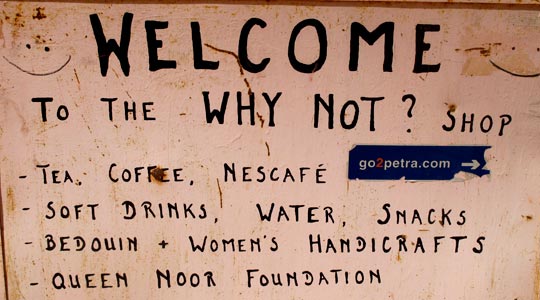 WELCOME
TO THE WHY NOT? SHOP
- TEA, COFFEE, NESCAFÉ
go2petra.com
- SOFT DRINKS, WATER, SNACKS
- BEDOUIN + WOMEN'S HANDICRAFTS
- QUEEN NOOR FOUNDATION